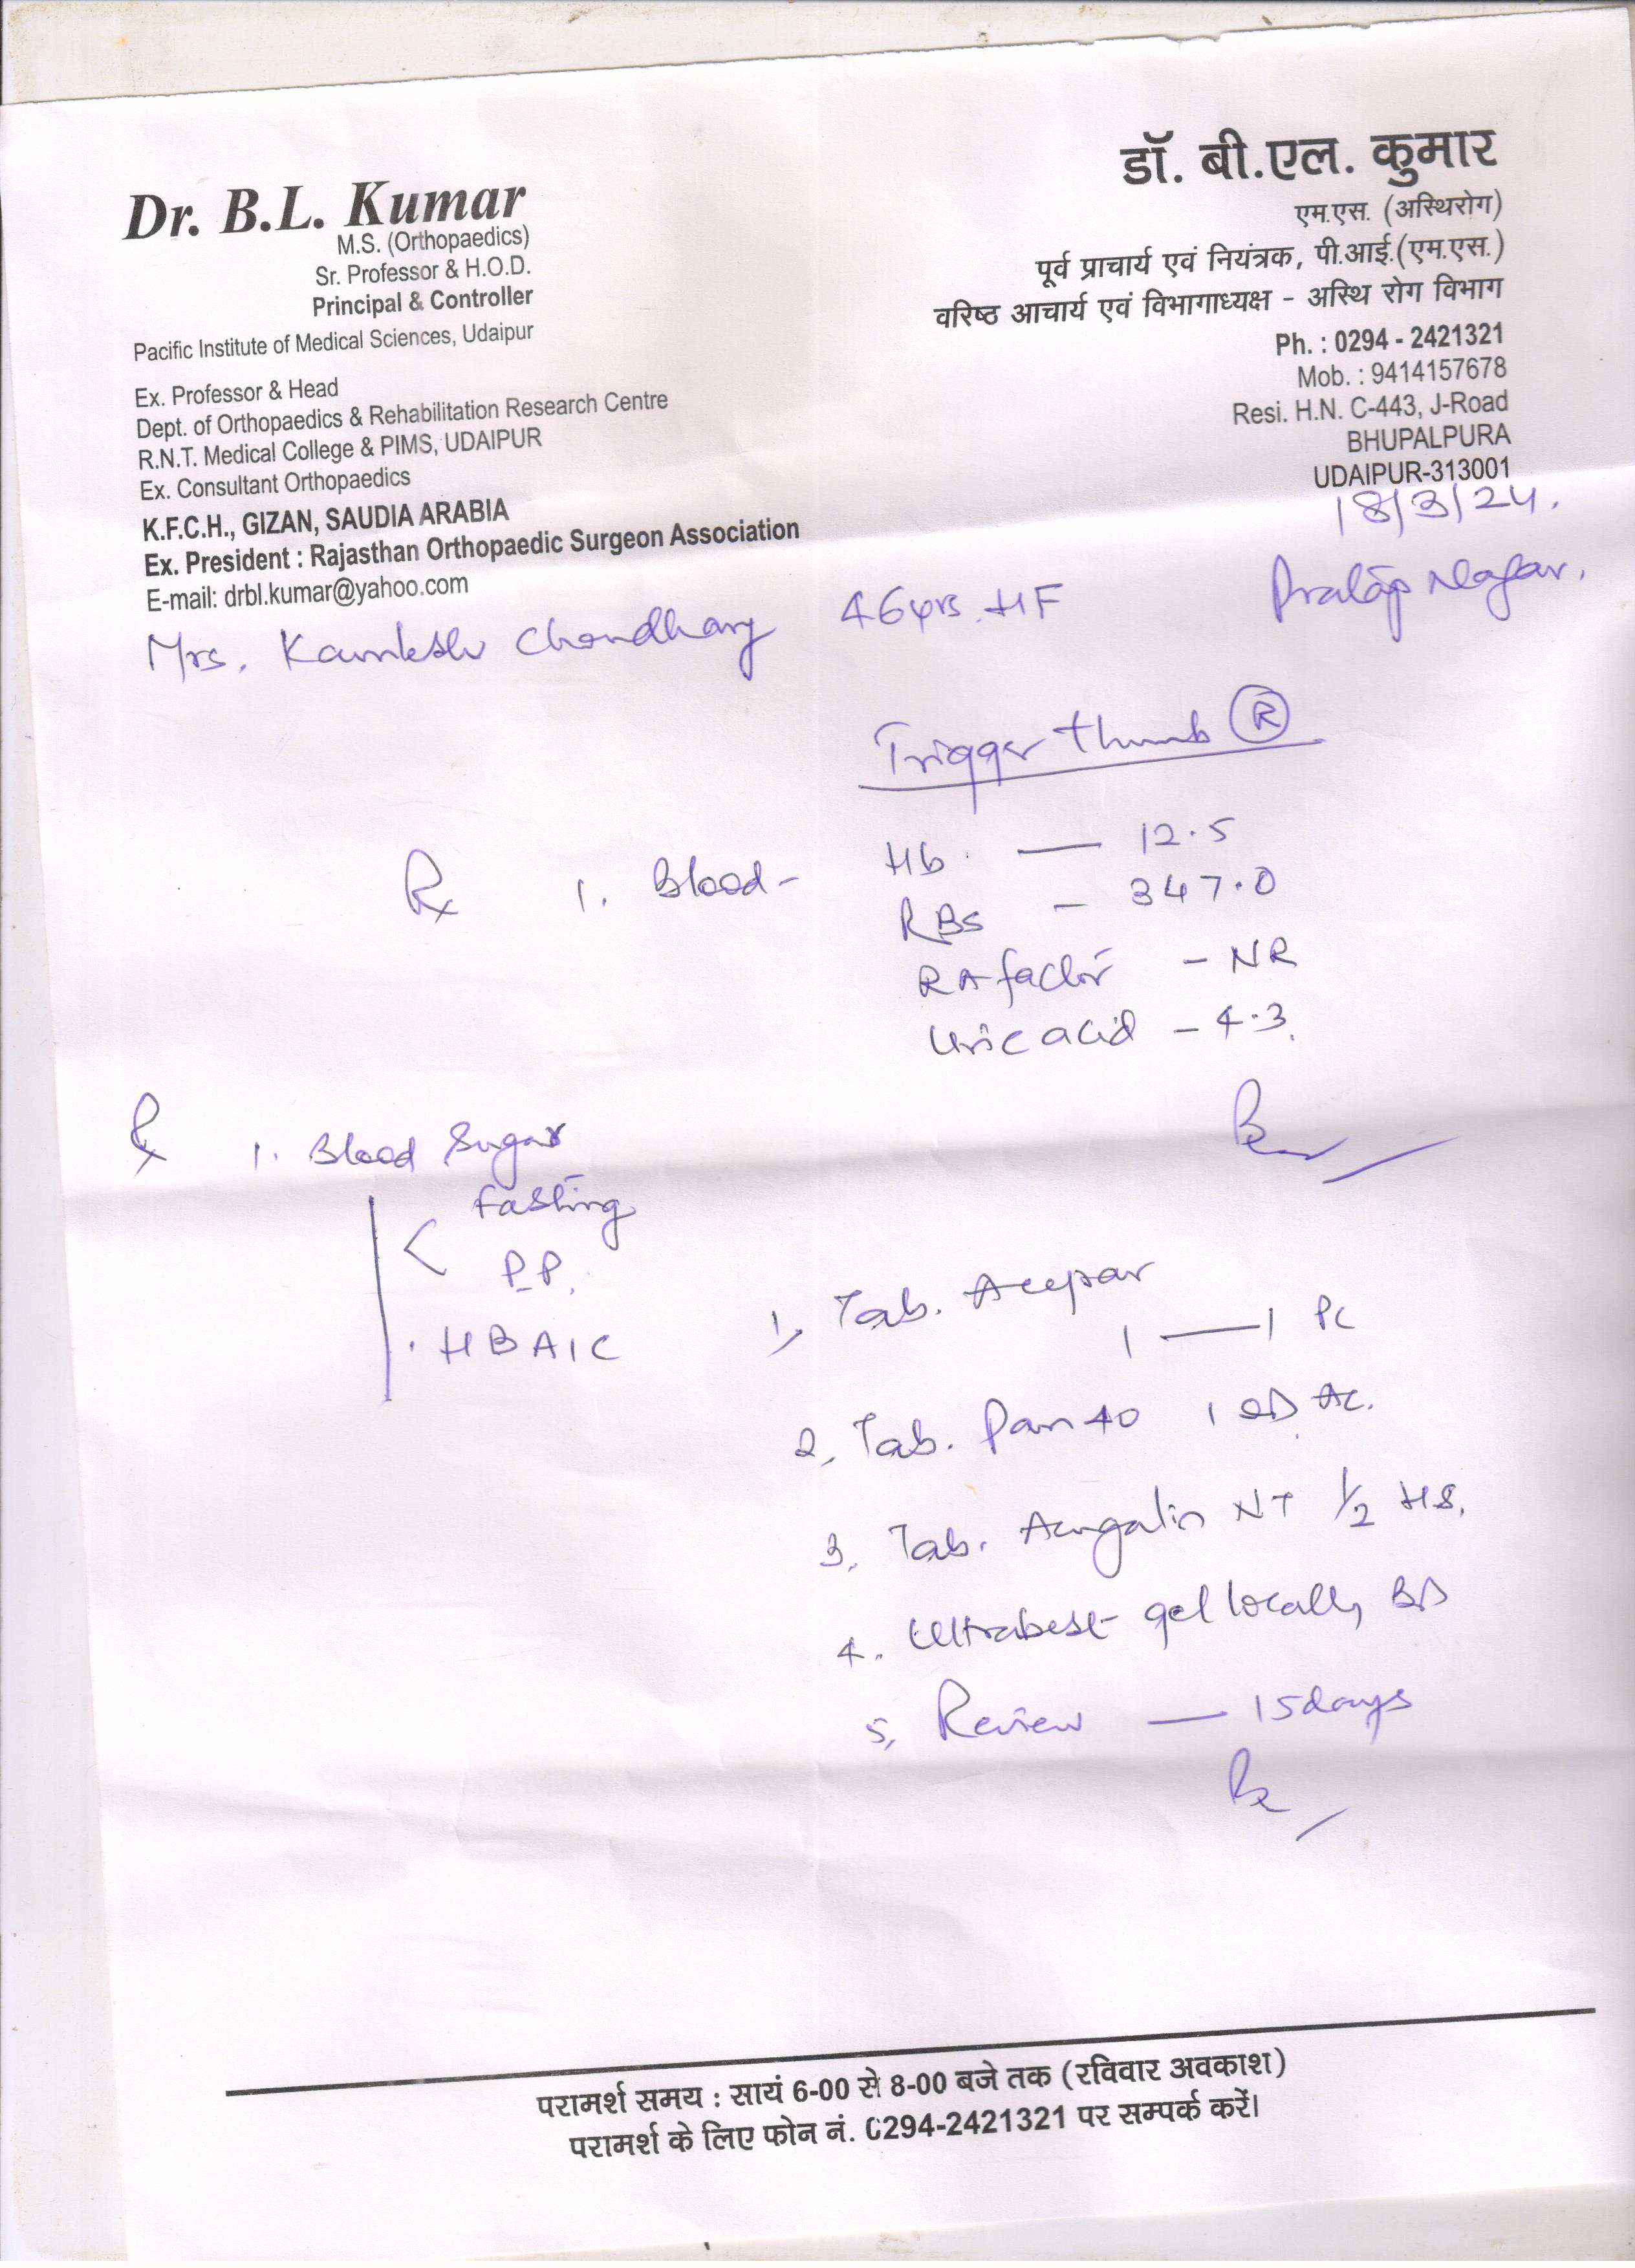 Dr. B.L. Kumar
M.S. (Orthopaedics)
Sr. Professor & H.O.D.
Principal & Controller
Pacific Institute of Medical Sciences, Udaipur
Ex. Professor & Head
Dept. of Orthopaedics & Rehabilitation Research Centre
R.N.T. Medical College & PIMS, UDAIPUR
Ex. Consultant Orthopaedics
K.F.C.H., GIZAN, SAUDIA ARABIA
Ex. President : Rajasthan Orthopaedic Surgeon Association
E-mail: drbl.kumar@yahoo.com
डॉ. बी.एल. कुमार
एम.एस. (अस्थिरोग)
पूर्व प्राचार्य एवं नियंत्रक, पी.आई.(एम.एस.)
वरिष्ठ आचार्य एवं विभागाध्यक्ष - अस्थि रोग विभाग
Ph. : 0294 - 2421321
Mob. : 9414157678
Resi. H.N. C-443, J-Road
BHUPALPURA
UDAIPUR-313001
18/3/24.
Mrs. Kamlesh Choudhary 46yrs. HF Pratap Nagar.
Trigger thumb R
Rx 1. Blood - Hb. — 12.5
RBS - 347.0
RA factor - NR
Uric acid - 4.3.
Rx 1. Blood Sugar
< Fasting
P.P.
. HBA1C
1, Tab.
1 — 1 PC
2, Tab. Pan 40 1 OD AC.
3, Tab. NT 1/2 HS.
4. Ultrabest gel locally BD
5, Review — 15days
परामर्श समय : सायं 6-00 से 8-00 बजे तक (रविवार अवकाश)
परामर्श के लिए फोन नं. 0294-2421321 पर सम्पर्क करें।